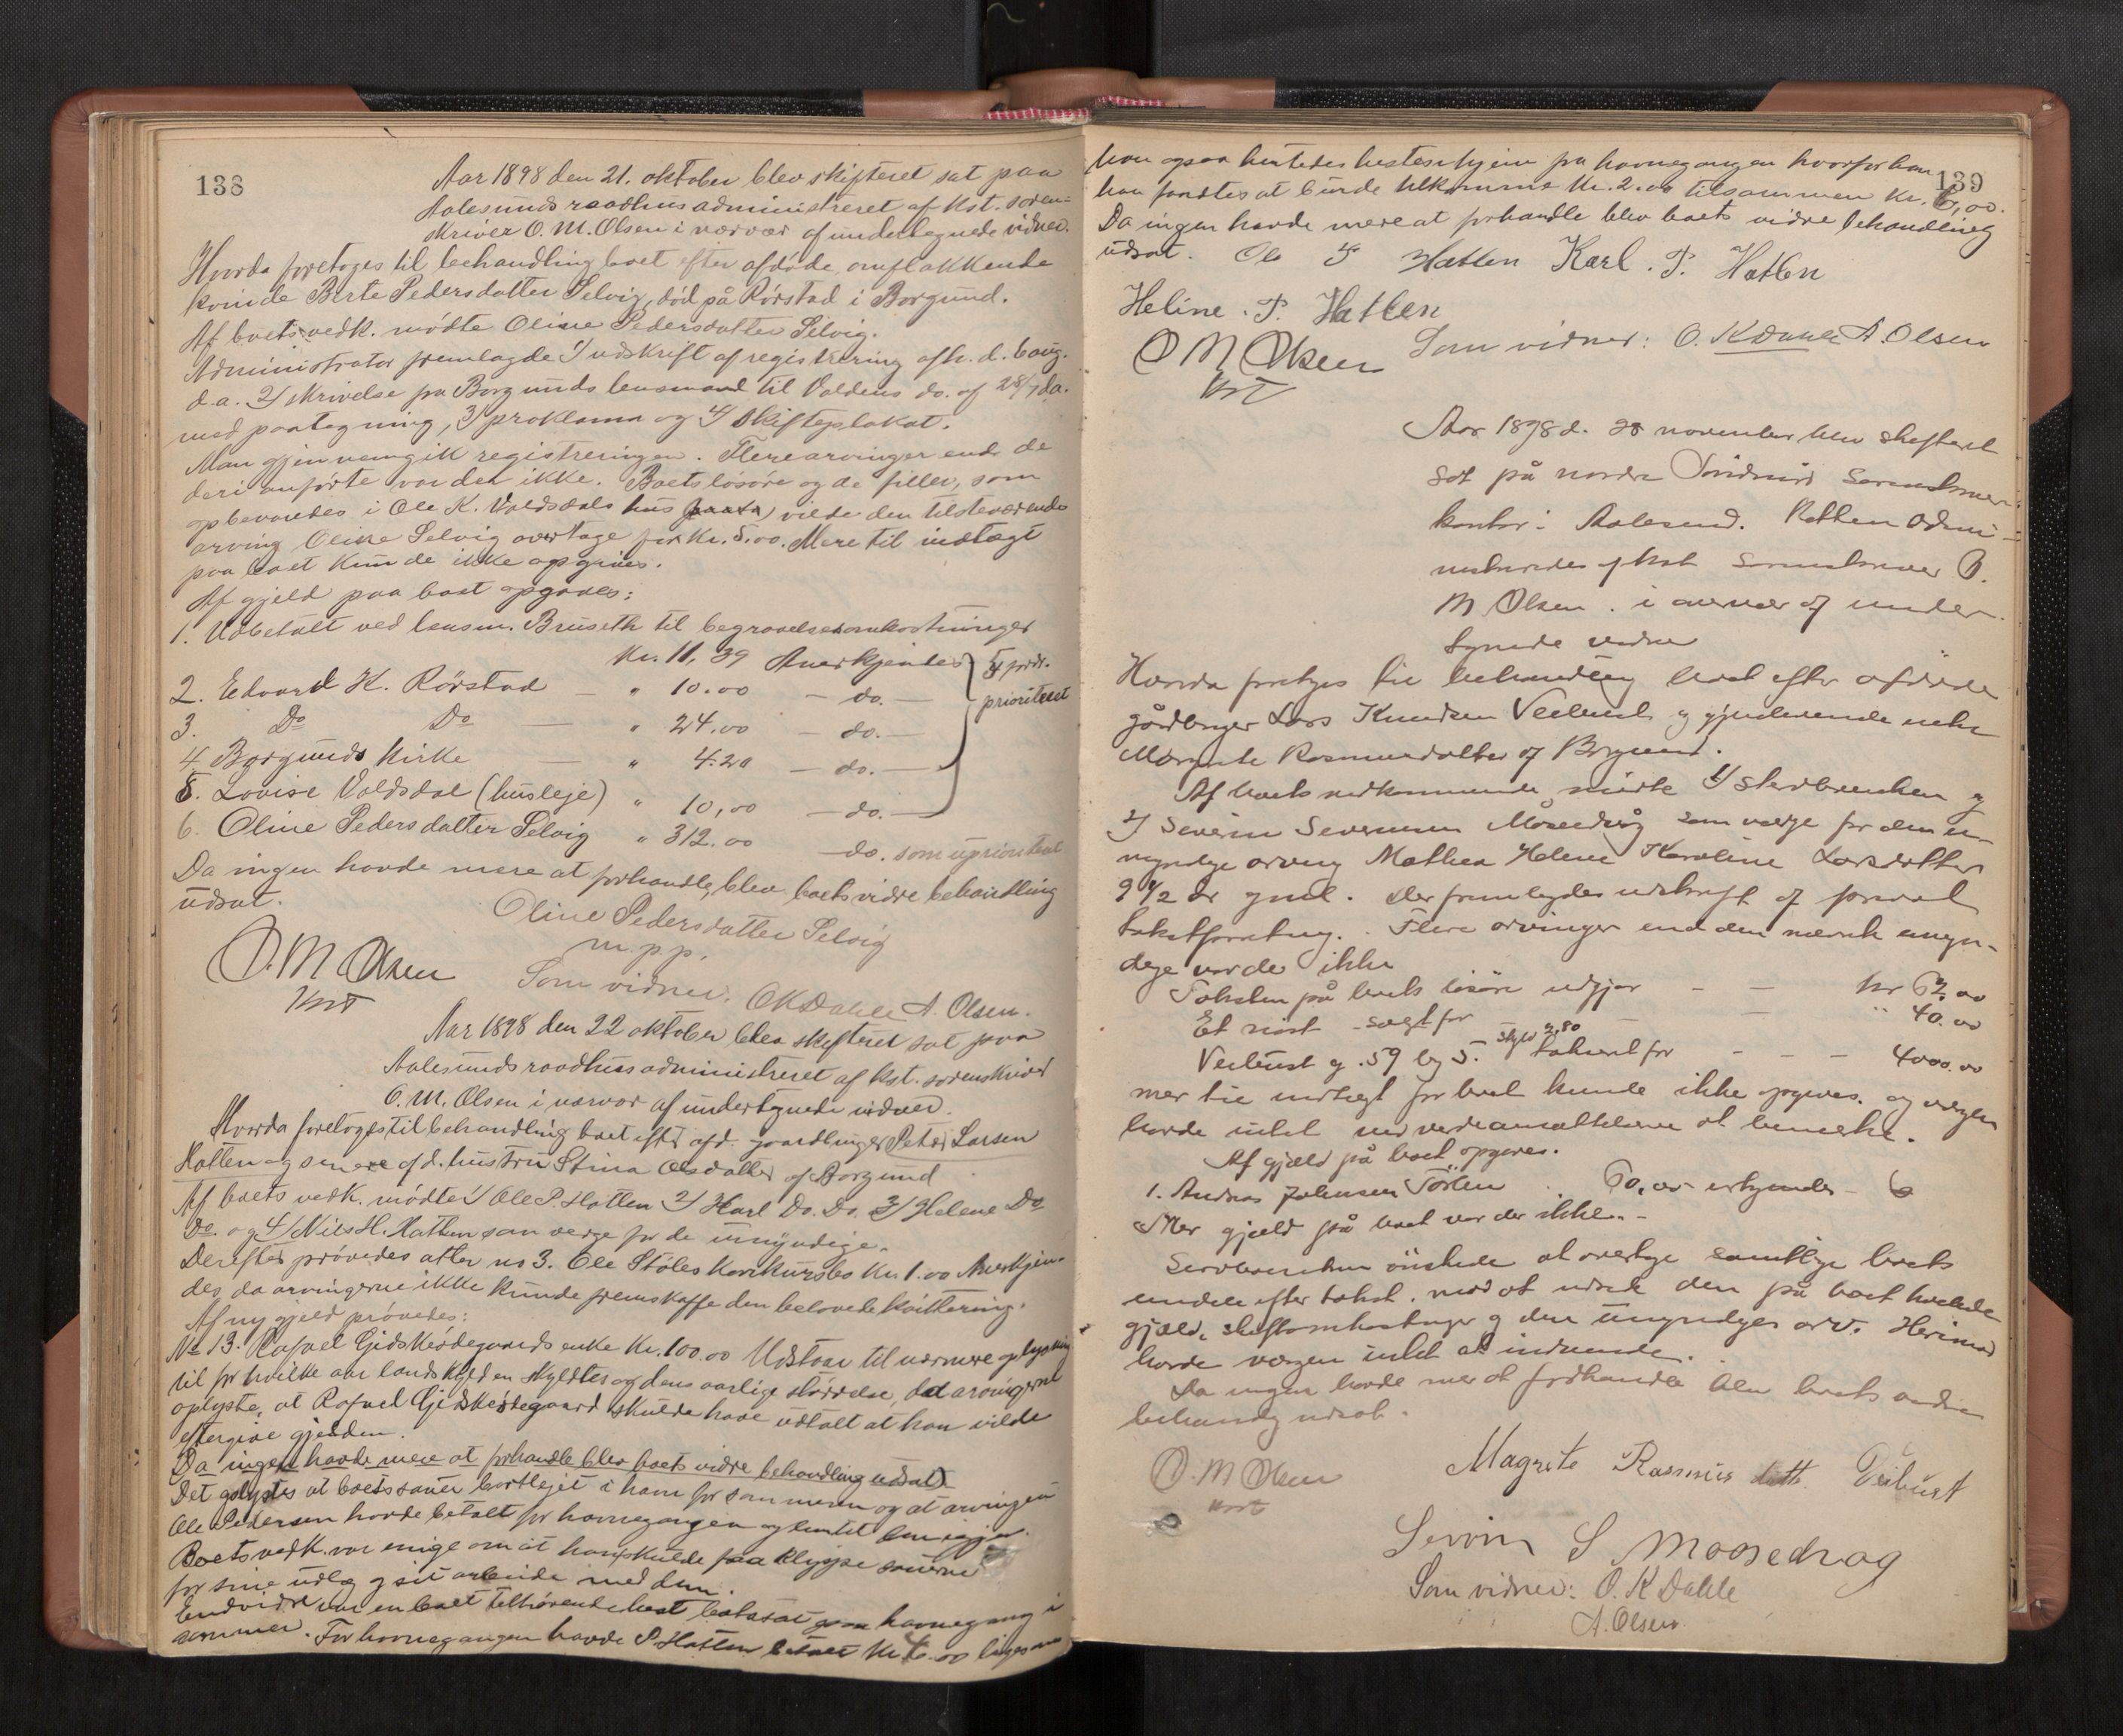 138
Aar 1898 den 21. oktober blev skifteret sat paa
Aalesunds raadhus administreret af kst. soren-
skriver O. M. Olsen i nærvær af undertegnede vidner.
Hvorda foretoges til behandling boet efter afdøde omflakkende
kvinde Berte Pedersdatter Selvig, død på Rørstad i Borgund.
Af boets vedk. mødte Oline Pedersdatter Selvig.
Administrator fremlagde 1/ udskrift af registrering afh. d. 6 aug.
d.a. 2/ skrivelse fra Borgunds lensmand til Voldens do. af 28/7 d.a.
med paategning, 3/ proklama og 4/ skifteplakat.
Man gjennemgik registreringen. Flere arvinger end de
deri anførte var der ikke. Boets løsøre og de filler, som
opbevaredes i Ole K. Valdsdals hus vilde den tilstedeværende
arving Oline Selvig overtage for Kr. 5.00. Mere til indtægt
paa boet kunde ikke opgives.
Af gjeld paa boet opgaves:
1. Udbetalt ved lensm. Bruseth til begravelsesomkostninger
Kr. 11,39 Anerkjendes 5 pr.
2. Edvard K. Rørstad — " 10.00 — do. — prioriteret
3. Do Do — " 24.00 — do. —
4. Borgunds kirke — " 4.20 — do. —
5. Lovise Valdsdal (husleje) " 10,00 — do. —
6. Oline Pedersdatter Selvig " 312.00 — do. som uprioriteret
Da ingen havde mere at forhandle, blev boets vidre behandling
udsat.
Oline Pedersdatter Selvig
m.p.p.
O. M Olsen
kst
Som vidner: O K Dahle A. Olsen.
Aar 1898 den 22 oktober blev skifteret sat paa
Aalesunds raadhus administreret af kst. sorenskriver
O. M. Olsen i nærvær af undertegnede vidner.
Hvorda foretoges til behandling boet efter afd. gaardbruger Peter Larsen
Hatlen og senere afd. hustru Stina Olsdatter af Borgund
Af boets vedk. mødte 1/ Ole P. Hatlen 2/ Karl Do. Do. 3/ Helene Do
Do. og 4/ Nils H. Hatlen som verge for de umyndige.
Derefter prøvedes atter no 3. Ole Støles konkursbo Kr. 1.00 Anerkjen-
des, da arvingerne ikke kunde fremskaffe den belovede kvittering.
Af ny gjeld prøvedes:
No 13. Rafael Gjidskeødegaards enke Kr. 100.00 Udstaar til nærmere oplysning
til for hvilke aar landskyld en skyldtes og dens aarlige størrelse, dat arvingerne
oplyste, at Rafael Gjidskeødegaard skulde have udtalt at han vilde
eftergive gjelden.
Da ingen havde mere at forhandle blev boets vidre behandling udsat
Det oplystes at boets sauer bortlejet i havn for sommeren og at arvingen
Ole Pedersen havde betalt for havnegangen og hentet dem igjen.
Boets vedk. var enige om at han skulde faa klyppe sauerne
for sine udlæg og sit arbeide med dem.
Endvidre var en boet tilhørende hest bortsat paa havnegang i
sommer. For havnegangen havde P Hatlen betalt Kr 4.00 ligesom
139
han ogsaa hentedes hesten hjem fra havnegangen hvorfor han
han fandtes at burde tilkomme Kr. 2.00 tilsammen Kr. 6,00.
Da ingen havde mere at forhandle blev boets vidre behandling
udsat. Ole P Hatlen Karl. P. Hatlen
Heline. P. Hatlen
O M Olsen
kst
Som vidner: O. K Dahle A. Olsen
Aar 1898 d. 28 november blev skifteret
sat på nordre Søndmørs Sorenskriver-
kontor i Aalesund. Retten admi-
nistreredes af kst sorenskriver O.
M Olsen i overvær af under-
tegnede vidner
Hvorda foretoges til behandling boet efter afdøde
gårdbruger Lars Knudsen Veibust og gjenlevende enke
Margrete Rasmusdatter af Borgund.
Af boets vedkommende mødte 1/ Stervboenken og
2/ Severin Severinsen Mosedrag som værge for den u-
myndige arving Mathea Helene Karoline Larsdatter
9 1/2 år gml. Der fremlagdes udskrift af forevol
takstforretng. Flere arvinger end den nævnte umyn-
dige var der ikke
Taksten på boets løsøre udgjør — — kr 62,00
Et nøst solgt for — — " 40.00
Veibust g. 59 b 5. skyld 2,80 takseret for — — — 4000.00
mer til indtægt for boet kunde ikke opgives. og værgen
havde intet ved verdiansættelsene at bemerke.
Af gjæld på boet opgaves.
1. Andreas Johnsen Tørlen 60,00 erkjendes
Mer gjæld på boet var der ikke.
Stervboenken ønskede at overtage samtlige boets
eiendele efter takst. mod at udrede den på boet hvilende
gjæld, skifteomkostninger og den umyndiges arv. Herimod
havde værgen intet at indvende.
Da ingen havde mer at forhandle blev boets vidre
behandlg udsat.
O. M Olsen
kst
Magrete Rasmus datt. Veibust
Sevrin S Moosedrag
Som vidner: O. K Dahle
A. Olsen.